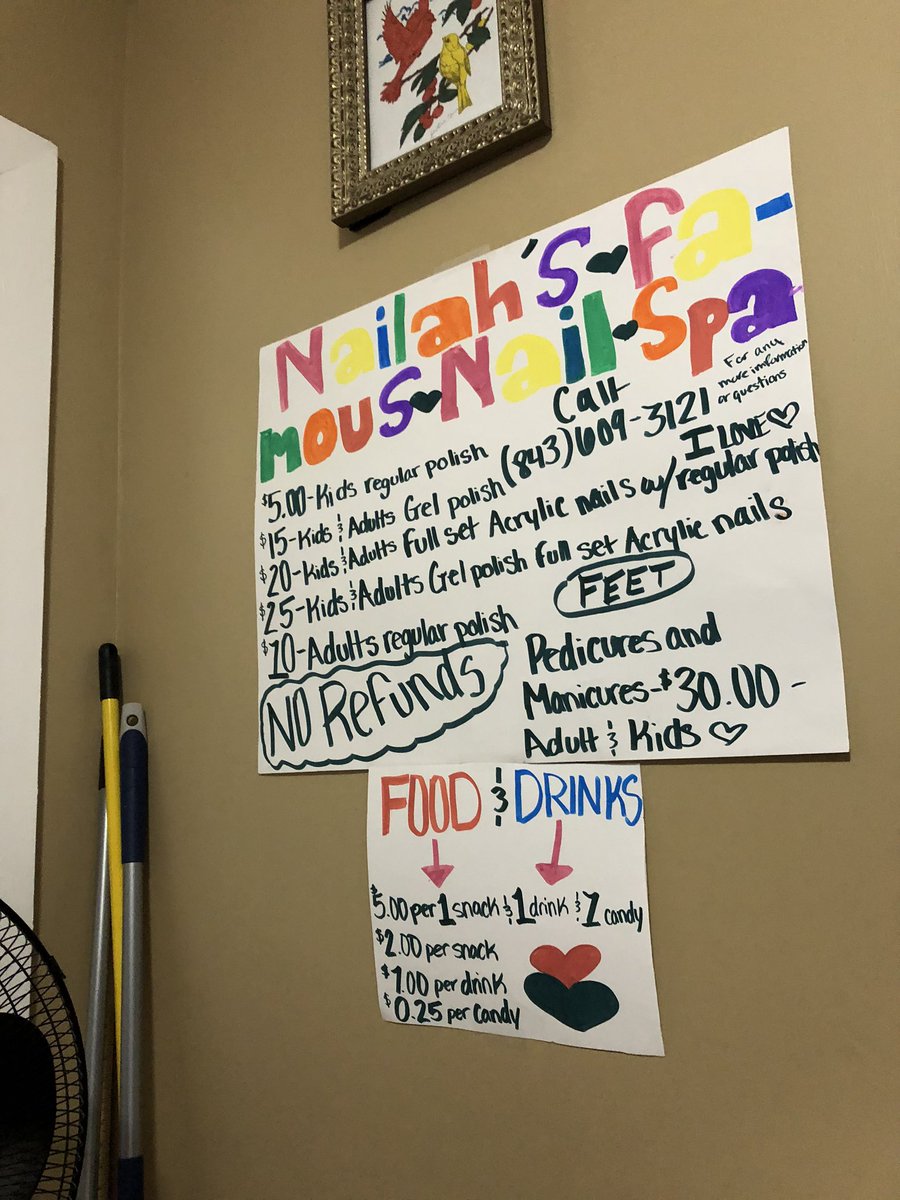 Nailah's Fa-
mous Nail Spa
Call
(843)609-3121
For any
more imformation
or questions
I LOVE
$5.00-Kids regular polish
$15-Kids & Adults Gel polish
$20-Kids & Adults Full set Acrylic nails w/regular polish
$25-Kids & Adults Gel polish full set Acrylic nails
$10-Adults regular polish
NO Refunds
FEET
Pedicures and
Manicures-$30.00-
Adult & Kids
FOOD & DRINKS
$5.00 per 1 snack & 1 drink & 1 candy
$2.00 per snack
$1.00 per drink
$0.25 per candy